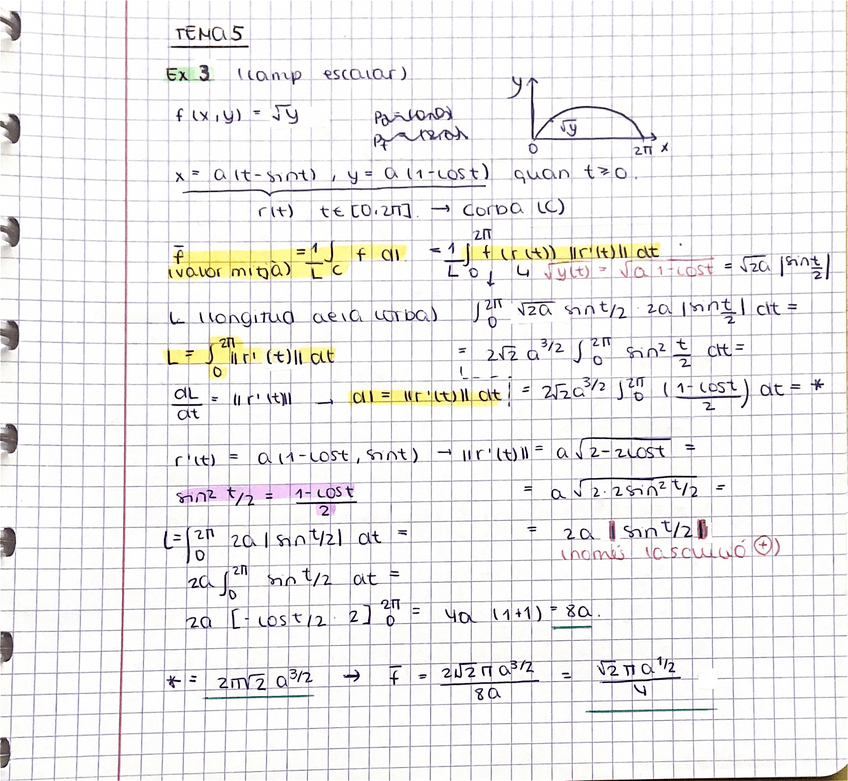 TEMA 5
Ex 3 (camp escalar)
f(x,y) = √y
y
√y
0 2π x
x = a(t-sint), y = a(1-cost) quan t≥0.
r(t) t∈[0,2π]. → corba (C)
f̄ (valor mitjà) = 1/L ∫_C f dl = 1/L ∫_0^{2π} f(r(t)) ||r'(t)|| dt
↳ √y(t) = √a 1-cost = √2a |sin t/2|
L (longitud de la corba) ∫_0^{2π} √2a sin t/2 · 2a |sin t/2| dt =
L = ∫_0^{2π} ||r'(t)|| dt = 2√2 a^{3/2} ∫_0^{2π} sin² t/2 dt =
dL/dt = ||r'(t)|| → dl = ||r'(t)|| dt = 2√2 a^{3/2} ∫_0^{2π} (1-cost/2) dt = *
r'(t) = a(1-cost, sint) → ||r'(t)|| = a√2-2cost =
sin² t/2 = 1-cost/2 = a√2·2sin² t/2 =
L = ∫_0^{2π} 2a |sin t/2| dt = = 2a |sin t/2|
(només la solució ⊕)
2a ∫_0^{2π} sin t/2 dt =
2a [-cos t/2 · 2]_0^{2π} = 4a (1+1) = 8a.
* = 2π√2 a^{3/2} → f̄ = 2√2 π a^{3/2}/8a = √2 π a^{1/2}/4